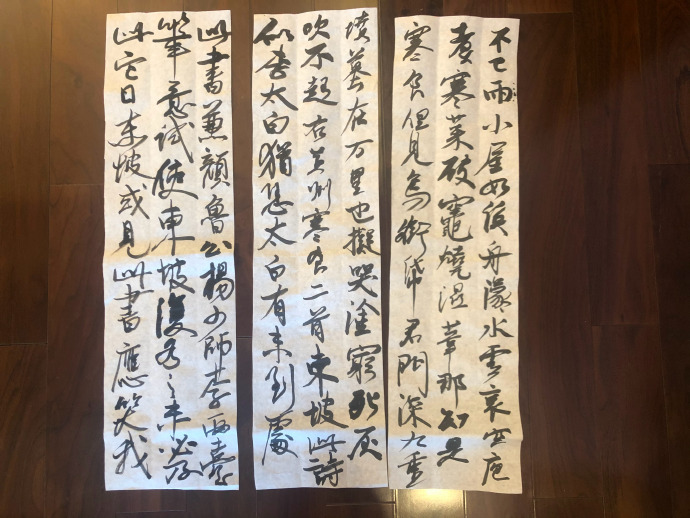 不已雨小屋如漁舟濛水雲裏空庖
煮寒菜破竈燒濕葦那知是
寒食但見烏銜帋君門深九重
墳墓在万里也擬哭塗窮死灰
吹不起右黃州寒食二首東坡此詩
似李太白猶恐太白有未到處
此書兼顏魯公楊少師李西臺
筆意試使東坡復為之未必及
此它日東坡或見此書應笑我